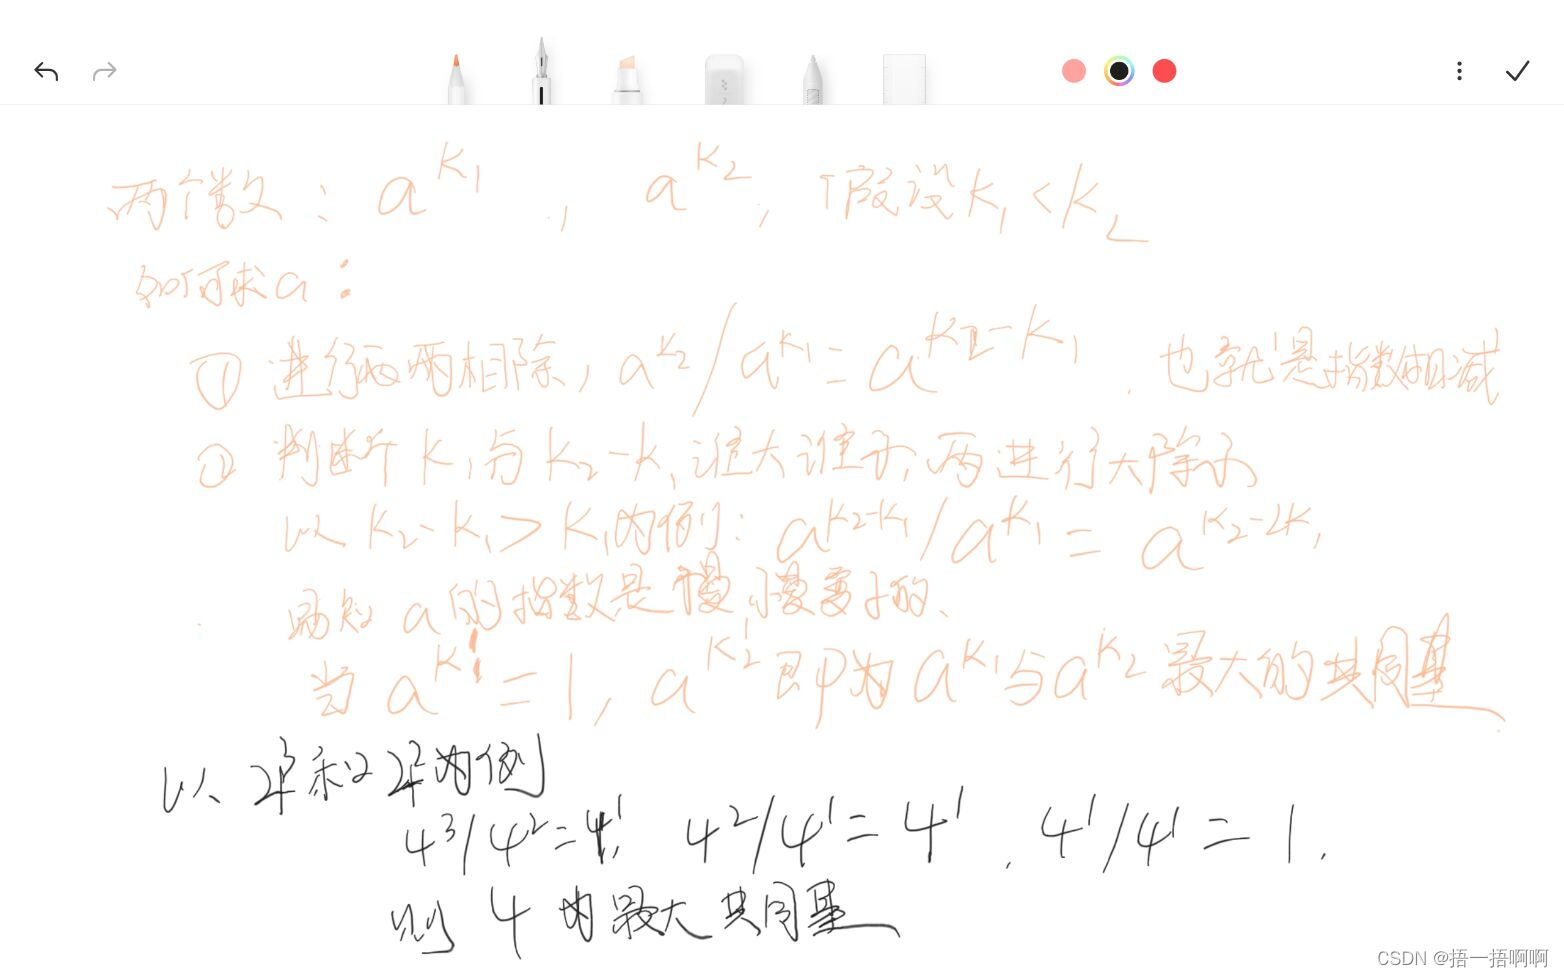 两个数：a^k₁，a^k₂，假设k₁<k₂
如何求a：
① 进行两两相除，a^k₂/a^k₁=a^(k₂-k₁)，也就是指数相减
② 判断k₁与k₂-k₁谁大谁小，再进行大除小
以k₂-k₁>k₁为例：a^(k₂-k₁)/a^k₁=a^(k₂-2k₁)
a的指数是慢慢变小的、
当a^k₁'=1，a^k₂'即为a^k₁与a^k₂最大的共同基
以4³和4²为例
4³/4²=4¹，4²/4¹=4¹，4¹/4¹=1.
则4为最大共同基
CSDN @捂一捂啊啊